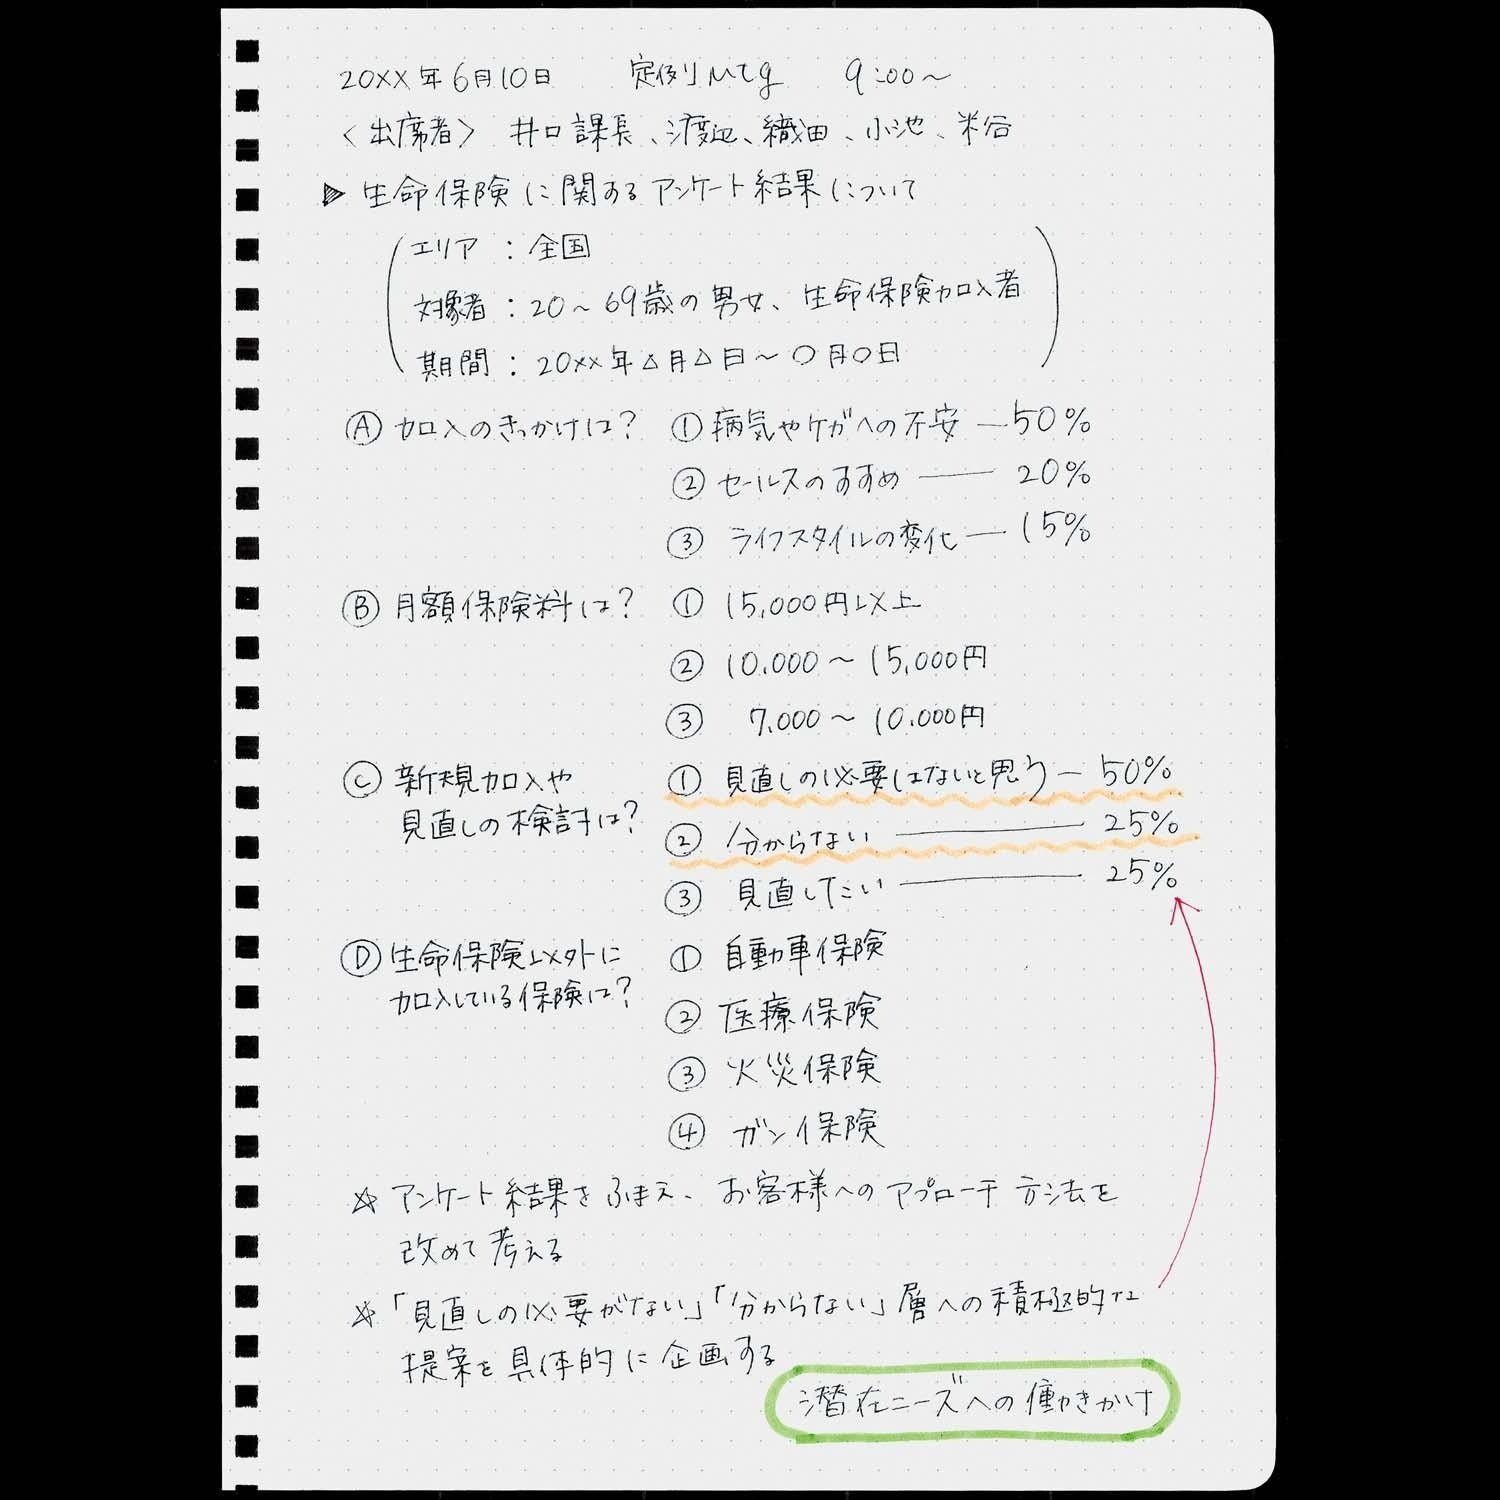 20XX年6月10日 定例Mtg 9:00～
〈出席者〉 井口課長、渡辺、織田、小池、米谷
▶ 生命保険に関するアンケート結果について
エリア : 全国
対象者 : 20～69歳の男女、生命保険加入者
期間 : 20XX年△月△日～○月○日
Ⓐ 加入のきっかけは? ① 病気やケガへの不安 — 50%
② セールスのすすめ — 20%
③ ライフスタイルの変化 — 15%
Ⓑ 月額保険料は? ① 15,000円以上
② 10.000～15,000円
③ 7,000～10.000円
Ⓒ 新規加入や ① 見直しの必要はないと思う — 50%
見直しの検討は?
② 分からない — 25%
③ 見直したい — 25%
Ⓓ 生命保険以外に ① 自動車保険
加入している保険は?
② 医療保険
③ 火災保険
④ ガン保険
☆ アンケート結果をふまえ、お客様へのアプローチ方法を
改めて考える
☆「見直しの必要がない」「分からない」層への積極的な
提案を具体的に企画する
潜在ニーズへの働きかけ